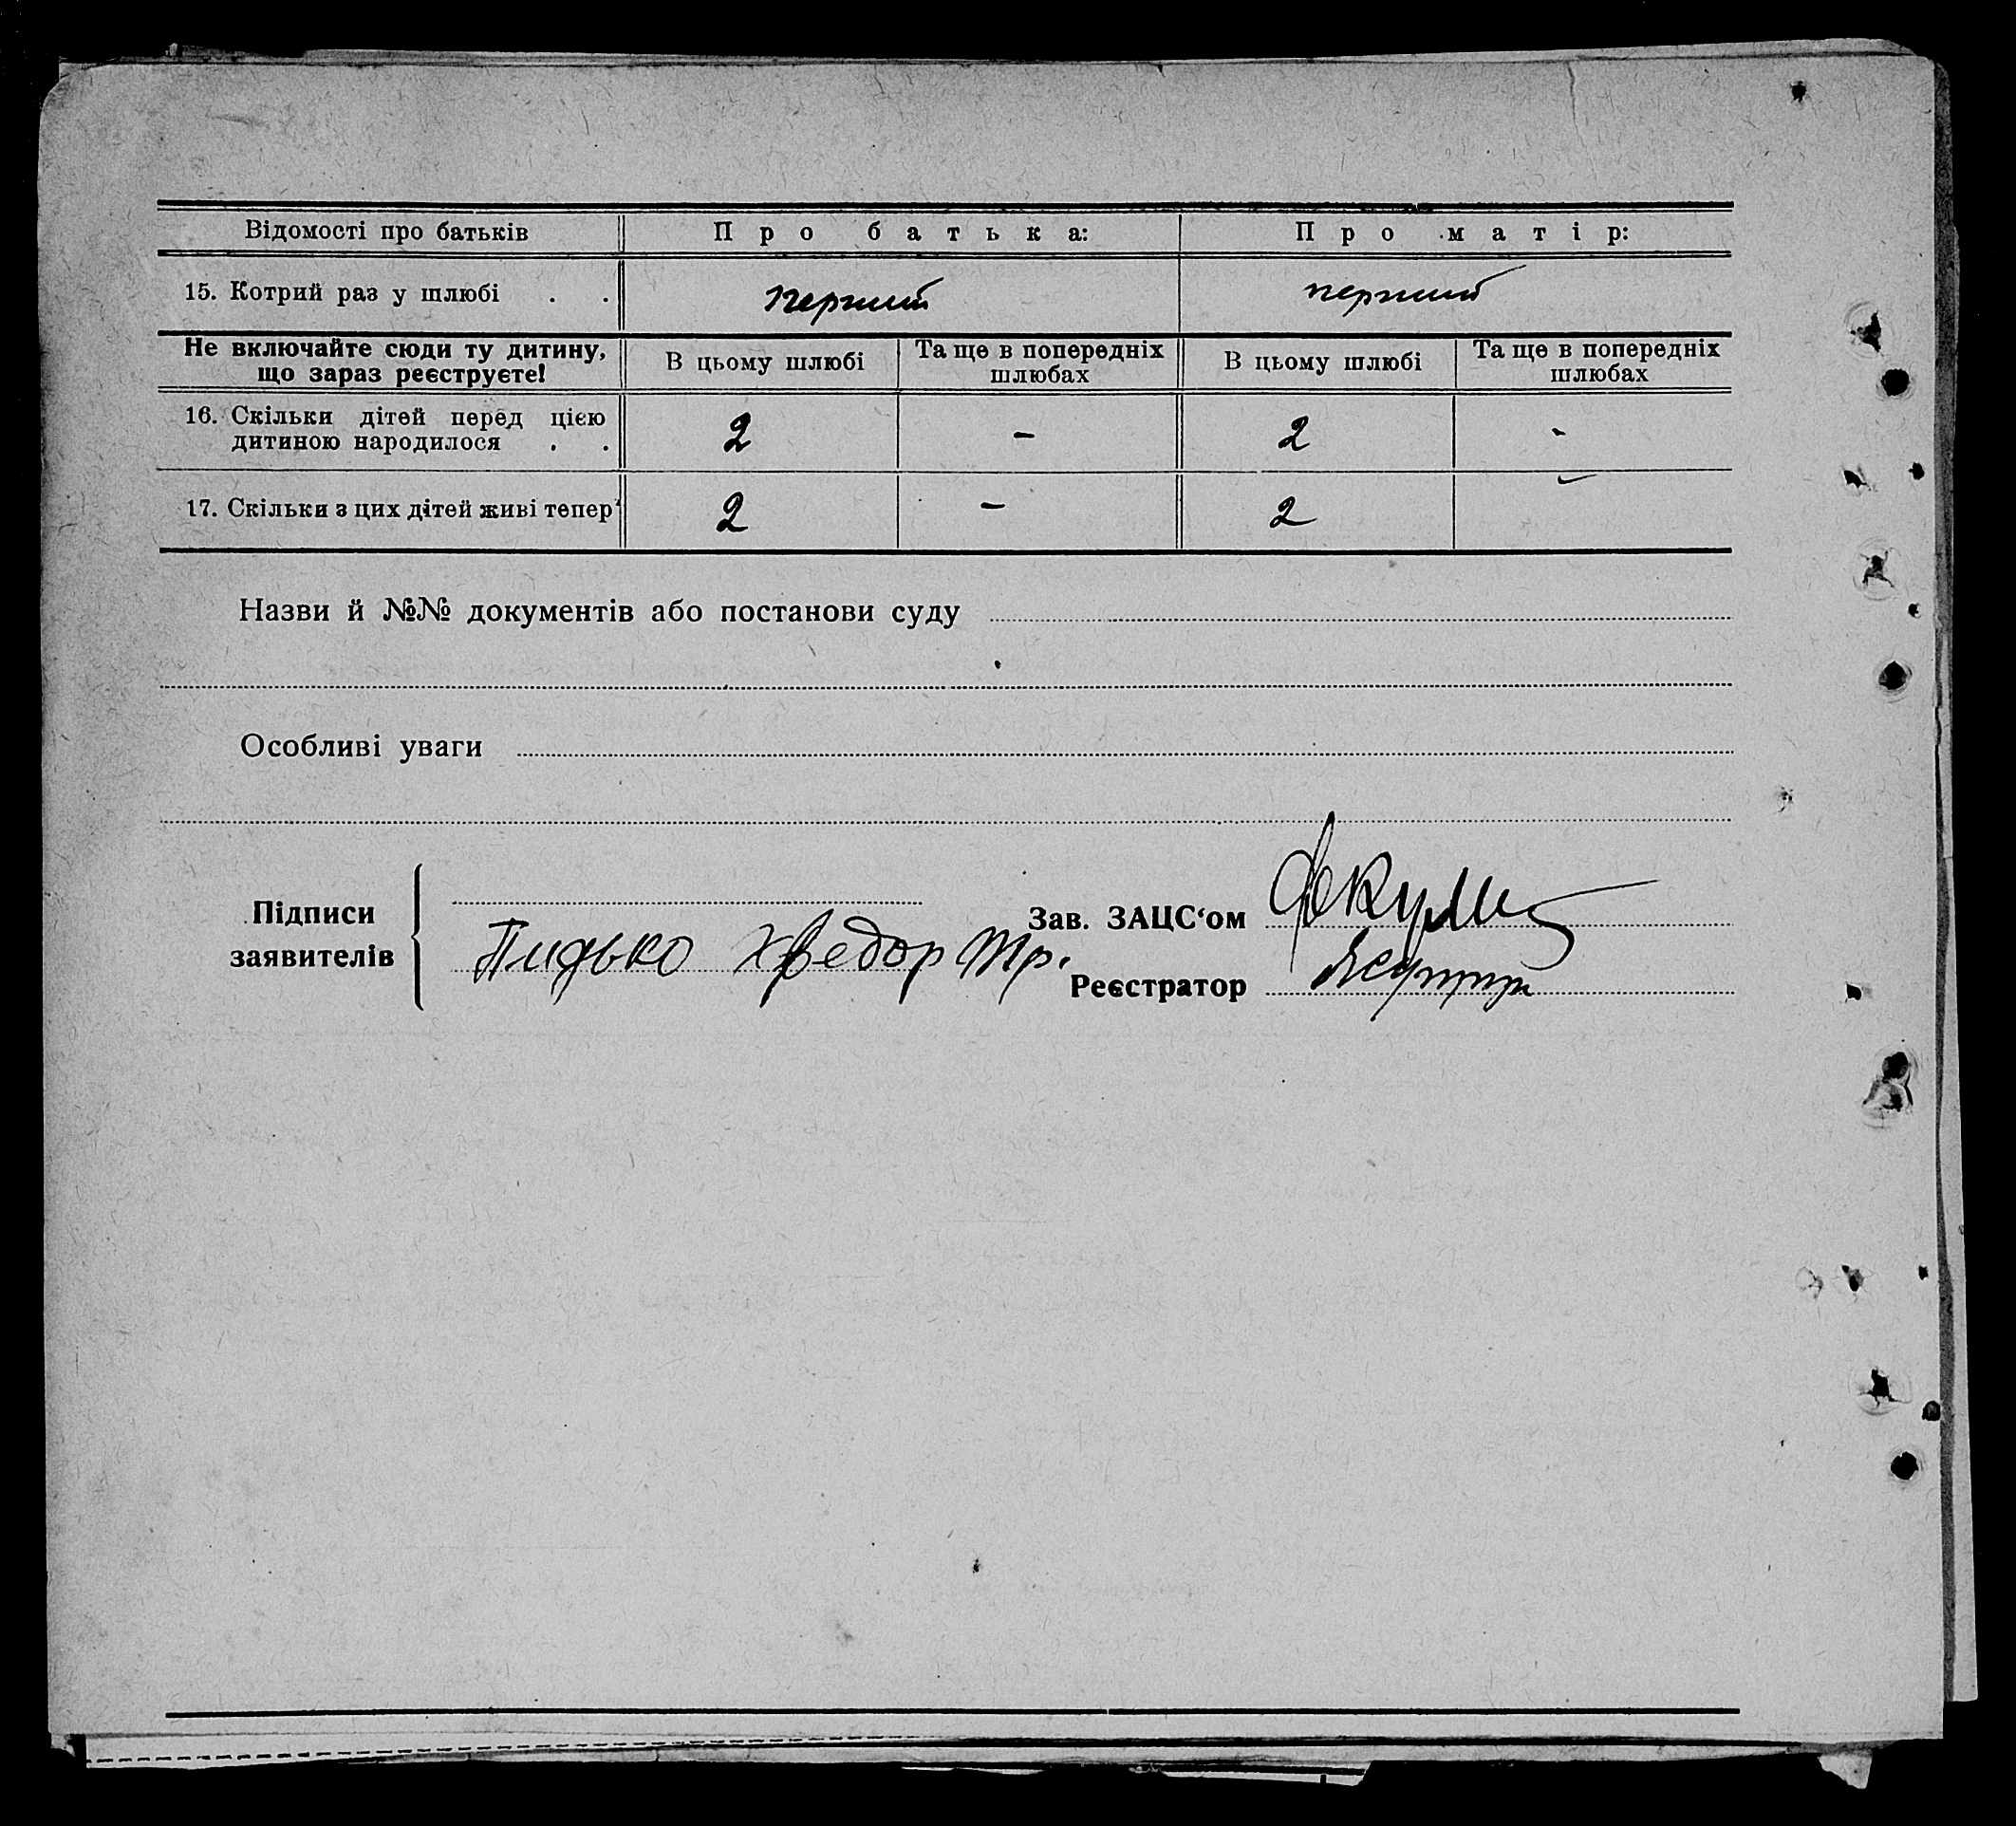 Відомості про батьків Про батька: Про матір:
15. Котрий раз у шлюбі . . перший перший
Не включайте сюди ту дитину, що зараз реєструєте! В цьому шлюбі Та ще в попередніх шлюбах В цьому шлюбі Та ще в попередніх шлюбах
16. Скільки дітей перед цією
дитиною народилося . . 2 - 2 -
17. Скільки з цих дітей живі тепер 2 - 2
Назви й №№ документів або постанови суду
Особливі уваги
Підписи заявителів
Зав. ЗАЦС‘ом
Пидько Хведор Тр.
Реєстратор